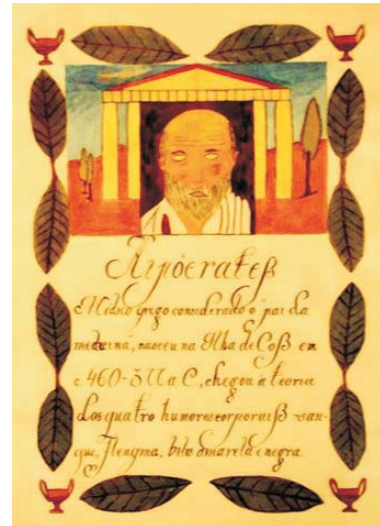 Hipócrateß
Médico grego considerado o pai da
medicina, nasceu na Ilha de Coß em
a C, chegou à teoria
dos quatro humores corporaiß san-
gue, flengma, bilis amarela e negra.